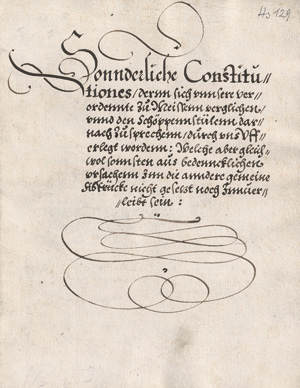 Hs 129
Sonnderliche Constitu//
tiones/ derñ sich vnnsere ver//
ordennte zu Meissenn verglichen/
vnnd den Schöppennstülenn dar//
nach zu sprechenn/ durch vns vff//
erlegt wordenn: Welche aber gleich//
wol sonnsten aus bedenncklichen
vrsachenn Inn die anndere gemeine
Abtrücke nicht gesetzt noch Inuer//
//leibt sein: